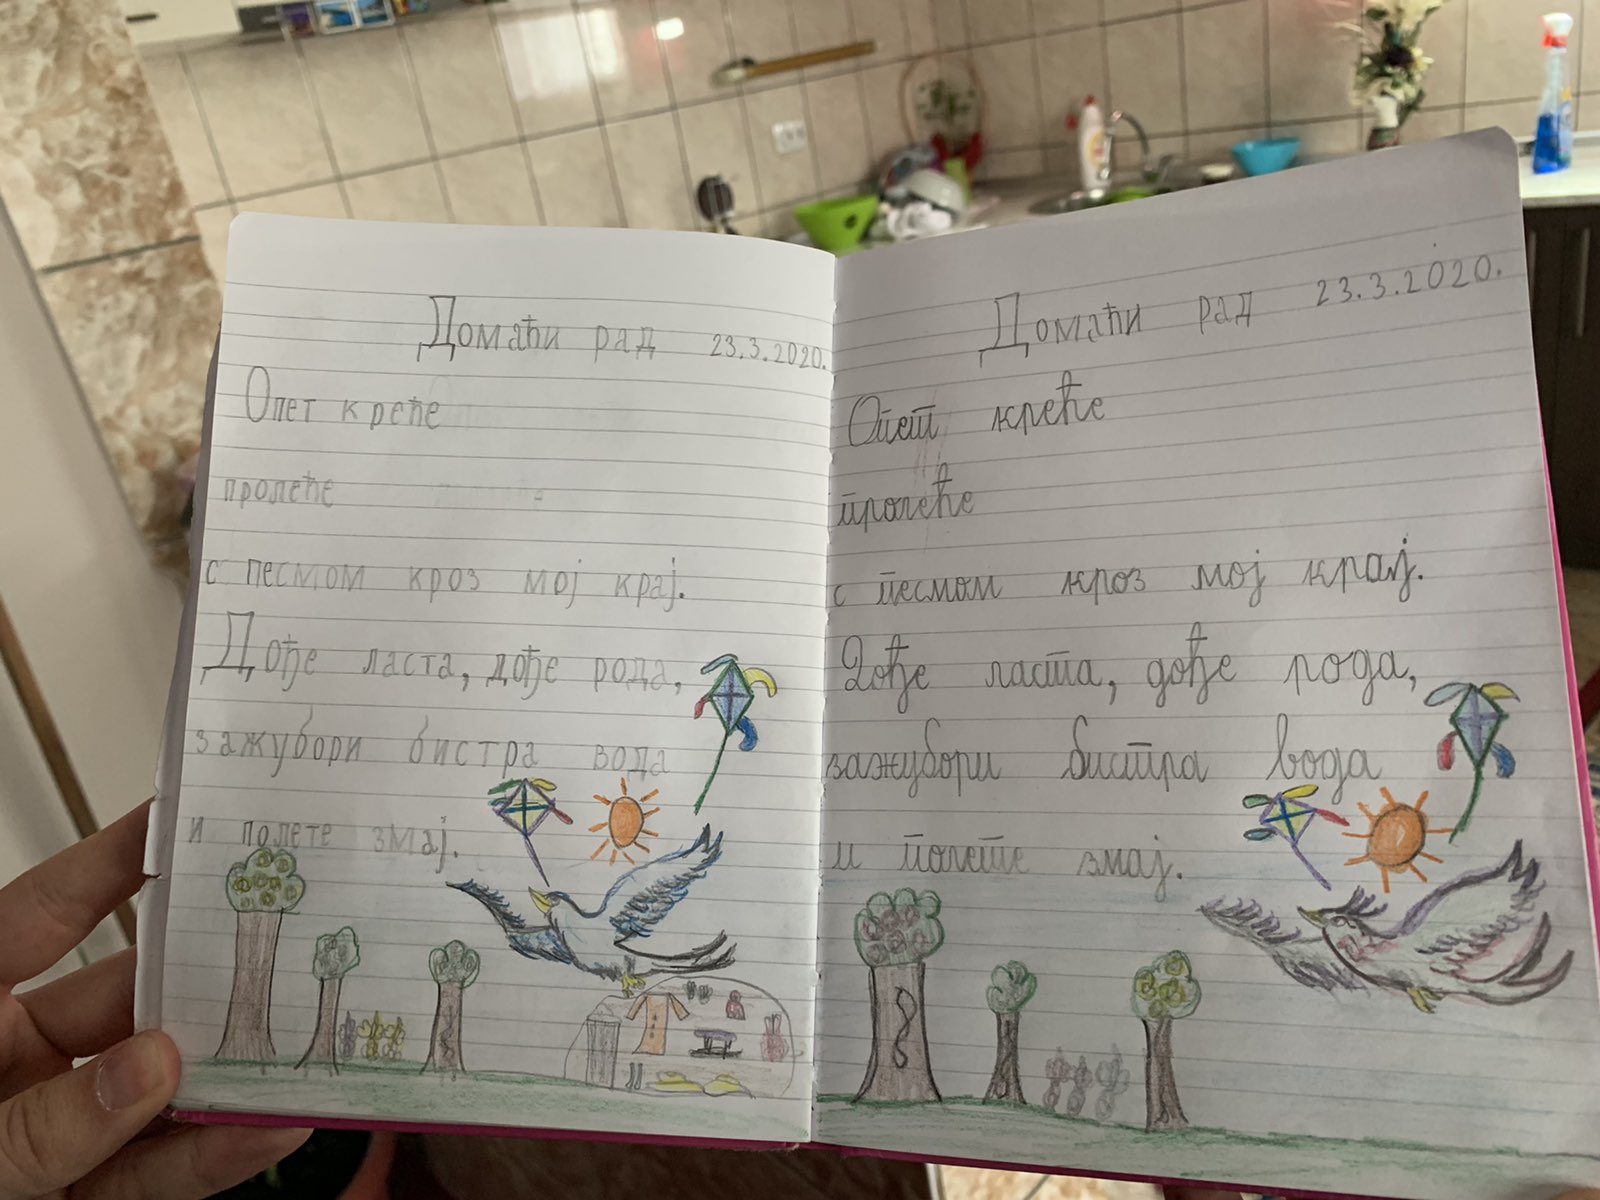 Домаћи рад 23.3.2020.
Опет креће
пролеће
с песмом кроз мој крај.
Дође ласта, дође рода,
зажубори бистра вода
и полете змај.
Домаћи рад 23.3.2020.
Опет креће
пролеће
с песмом кроз мој крај.
Дође ласта, дође рода,
зажубори бистра вода
и полете змај.